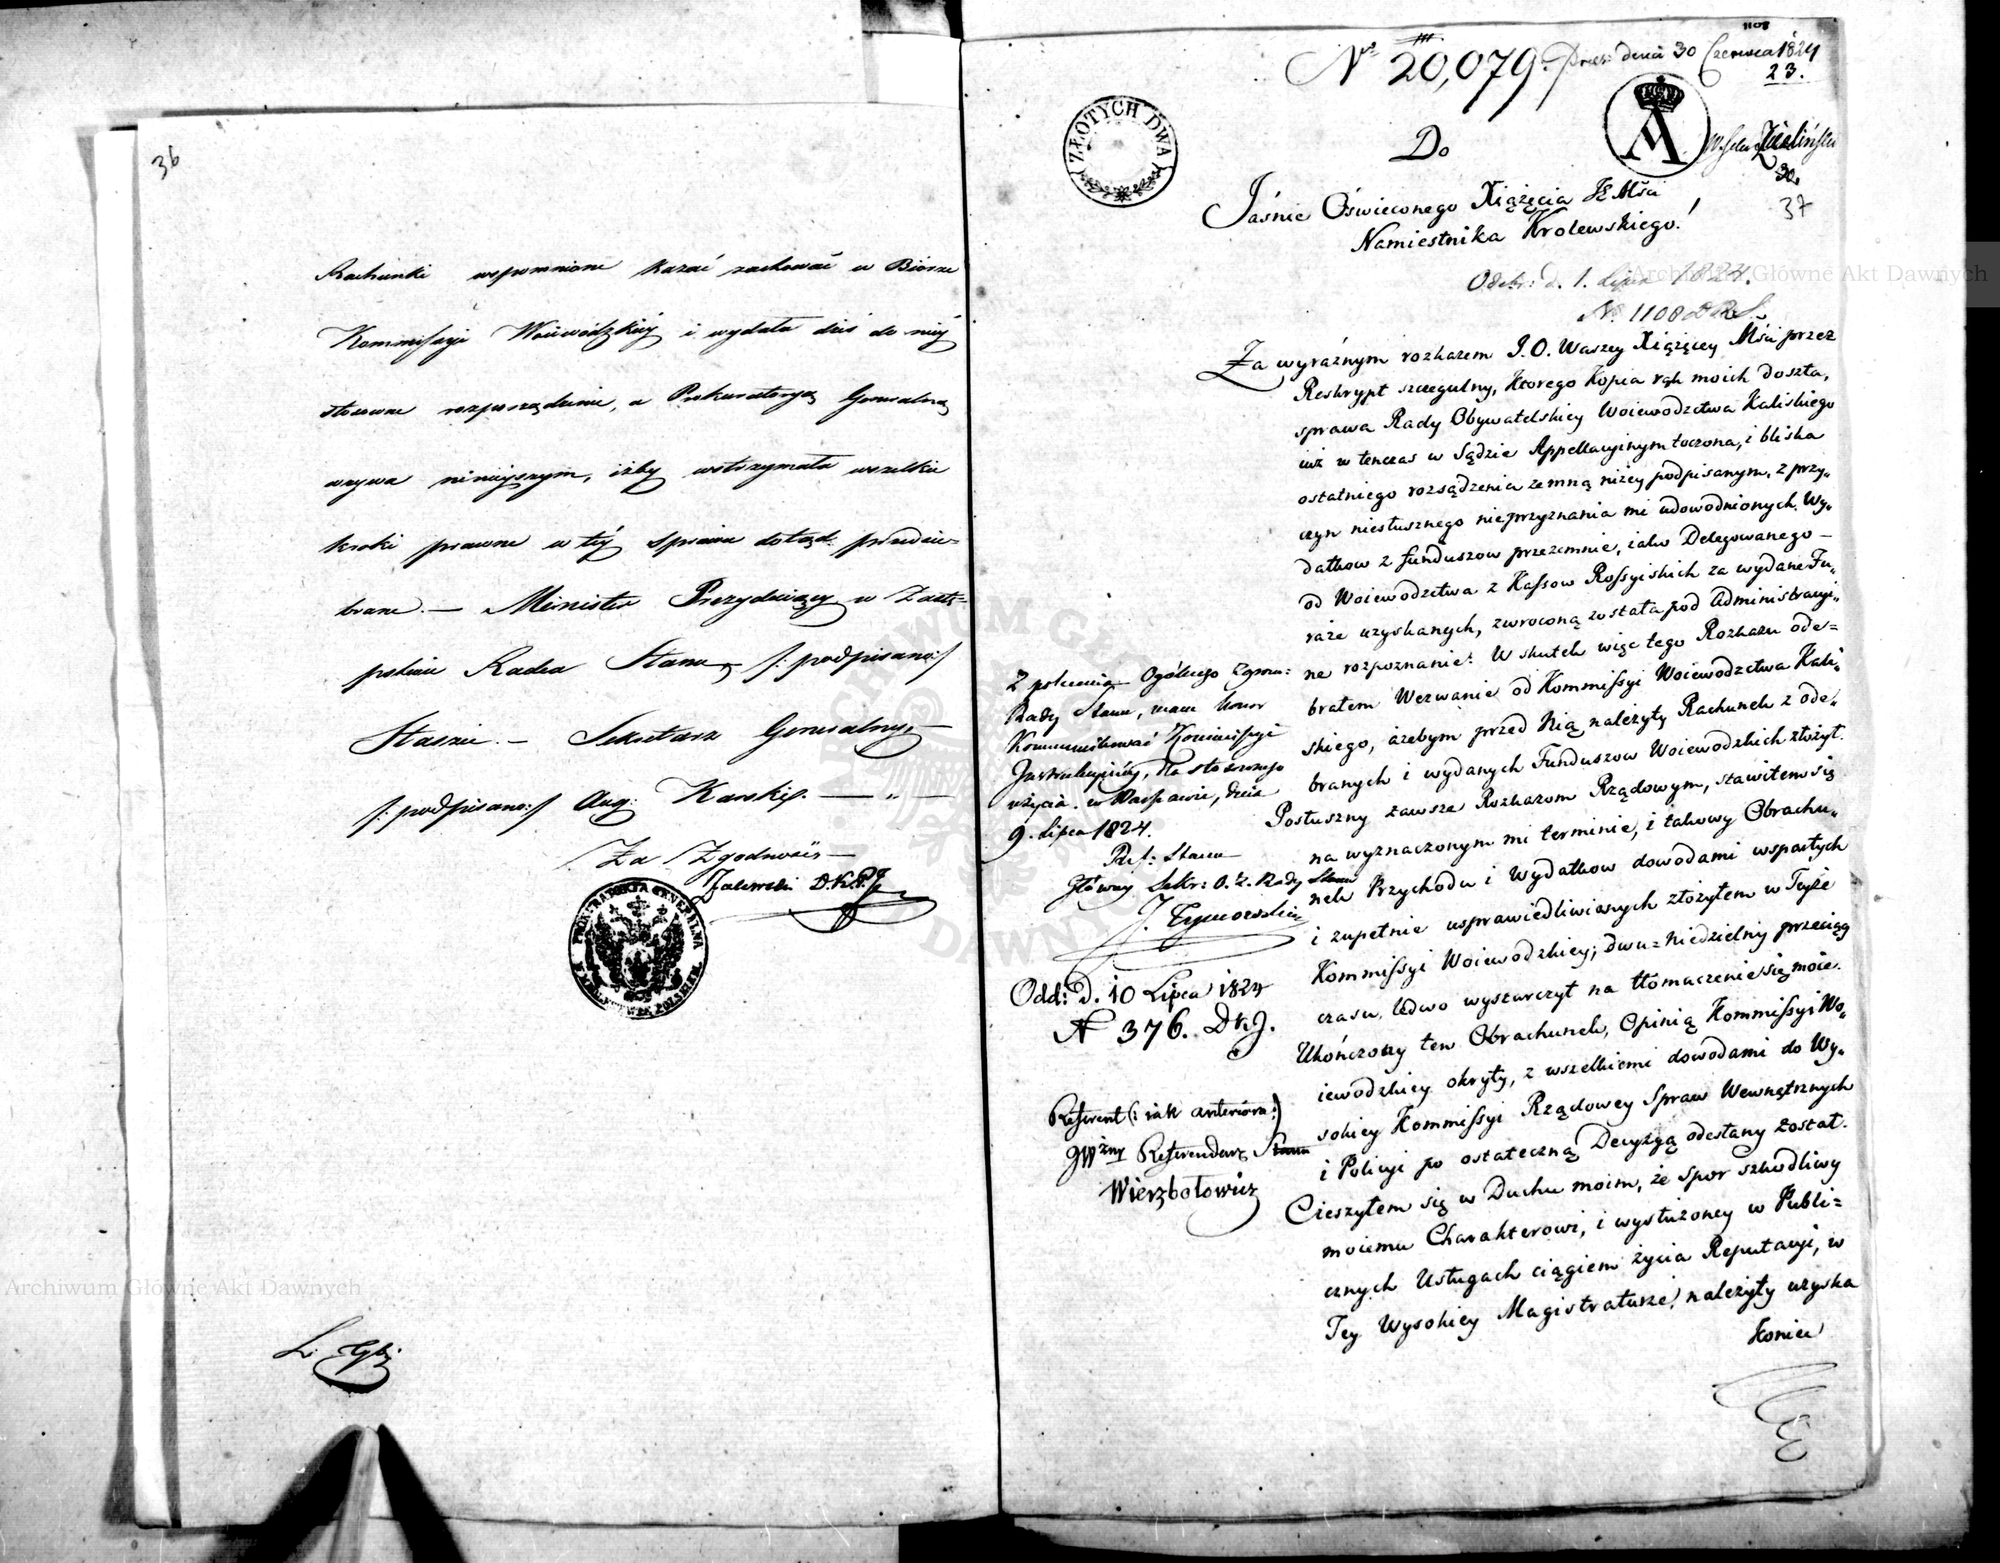 36
Rachunki wspomnione kazać zachować w Biórze
Kommissyi Woiewódzkiéy i wydała dziś do niéy
stosowne rozporządzenie, a Prokuratoryą Generalną
wzywa ninieyszym, iżby wstrzymała wszelkie
kroki prawne w téy sprawie dotąd przedsię-
brane. — Minister Prezyduiący w Zastę=
pstwie Radca Stanu /: podpisano:/
Staszic. — Sekretarz Generalny —
/: podpisano:/ Aug: Karski. — „ —
Za Zgodność —
Zalewski D.K.P.J.
PROKURATORJA GENERALNA
KRÓLESTWIE POLSKIEM
1108
Nº 20,079. Prez: dnia 30 Czerwca 1824
23.
ZŁOTYCH DWA
A
Zieliński
30.
37
Do
Jaśnie Oświeconego Xiążęcia JE Mści
Namiestnika Krolewskiego!
Odebr: d. 1. Lipca 1824.
Nº 1108
Za wyraźnym rozkazem J. O. Waszey Xiążęcey Mści przez
Reskrypt szczegulny, ktorego Kopia rąk moich doszła,
sprawa Rady Obywatelskiey Woiewodztwa Kaliskiego
iuż w tenczas w Sądzie Appellacyinym toczona, i bliska
ostatniego rozsądzenia zemną niżey podpisanym, z przy„
czyn niesłusznego nieprzyznania mi udowodnionych Wy„
datkow z funduszow przezemnie, iako Delegowanego —
od Woiewodztwa z Kassow Rossyiskich za wydane Fu„
raże uzyskanych, zwroconą została pod Administracyi„
ne rozpoznanie. W skutek więc tego Rozkazu ode=
brałem Wezwanie od Kommissyi Woiewodztwa Kali„
skiego, ażebym przed Nią należyty Rachunek z ode„
branych i wydanych Funduszow Woiewodzkich złożył.
Posłuszny zawsze Rozkazom Rządowym, stawiłem się
na wyznaczonym mi terminie, i takowy Obrachu„
nek Przychodu i Wydatkow dowodami wspartych
i zupełnie usprawiedliwianych złożyłem w Teyże
Kommissyi Woiewodzkiey; dwu=niedzielny przeciąg
czasu, ledwo wystarczył na tłomaczenie się moie.
Ukończony ten Obrachunek, Opinią Kommissyi Wo„
iewodzkiey okryty, z wszelkiemi dowodami do Wy„
sokiey Kommissyi Rządowey Spraw Wewnętrznych
i Policyi po ostateczną Decyzyą odesłany został.
Cieszyłem się w Duchu moim, że Spor szkodliwy
moiemu Charakterowi, i wysłużoney w Publi=
cznych Usługach ciągiem życia Reputacyi, w
Tey Wysokiey Magistraturze, należyty uzyska
Koniec
Z polecenia Ogólnego Zgrom:
Rady Stanu, mam honor
Kommunikować Kommissyi
Instrukcyinéy, dla stosownego
użycia. w Warszawie, dnia
9. Lipca 1824.
Ref: Stanu
Główny Sekr: O. Z. Rady Stanu
J. Tymowski
Odd: D. 10 Lipca 1824
N 376. D.K.J.
Referent (: iak anteriora:)
JW Referendarz Stanu
Wierzbołowicz